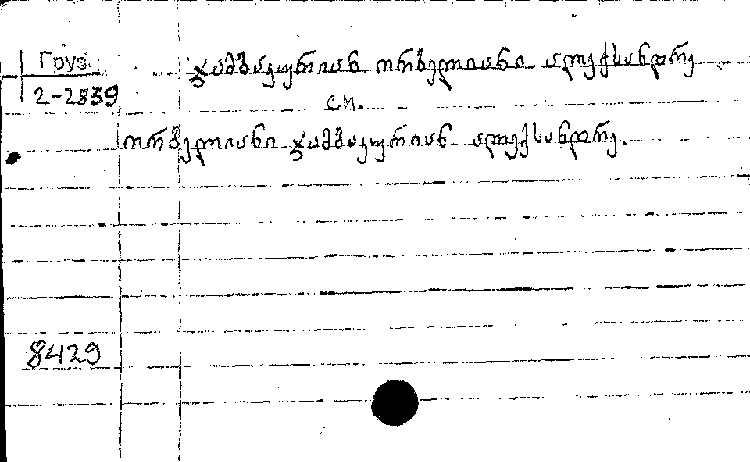 Груз.
2-2839
ჯამბაკურიან ორბელიანი ალექსანდრე
см.
ორბელიანი ჯამბაკურიან ალექსანდრე.
8429